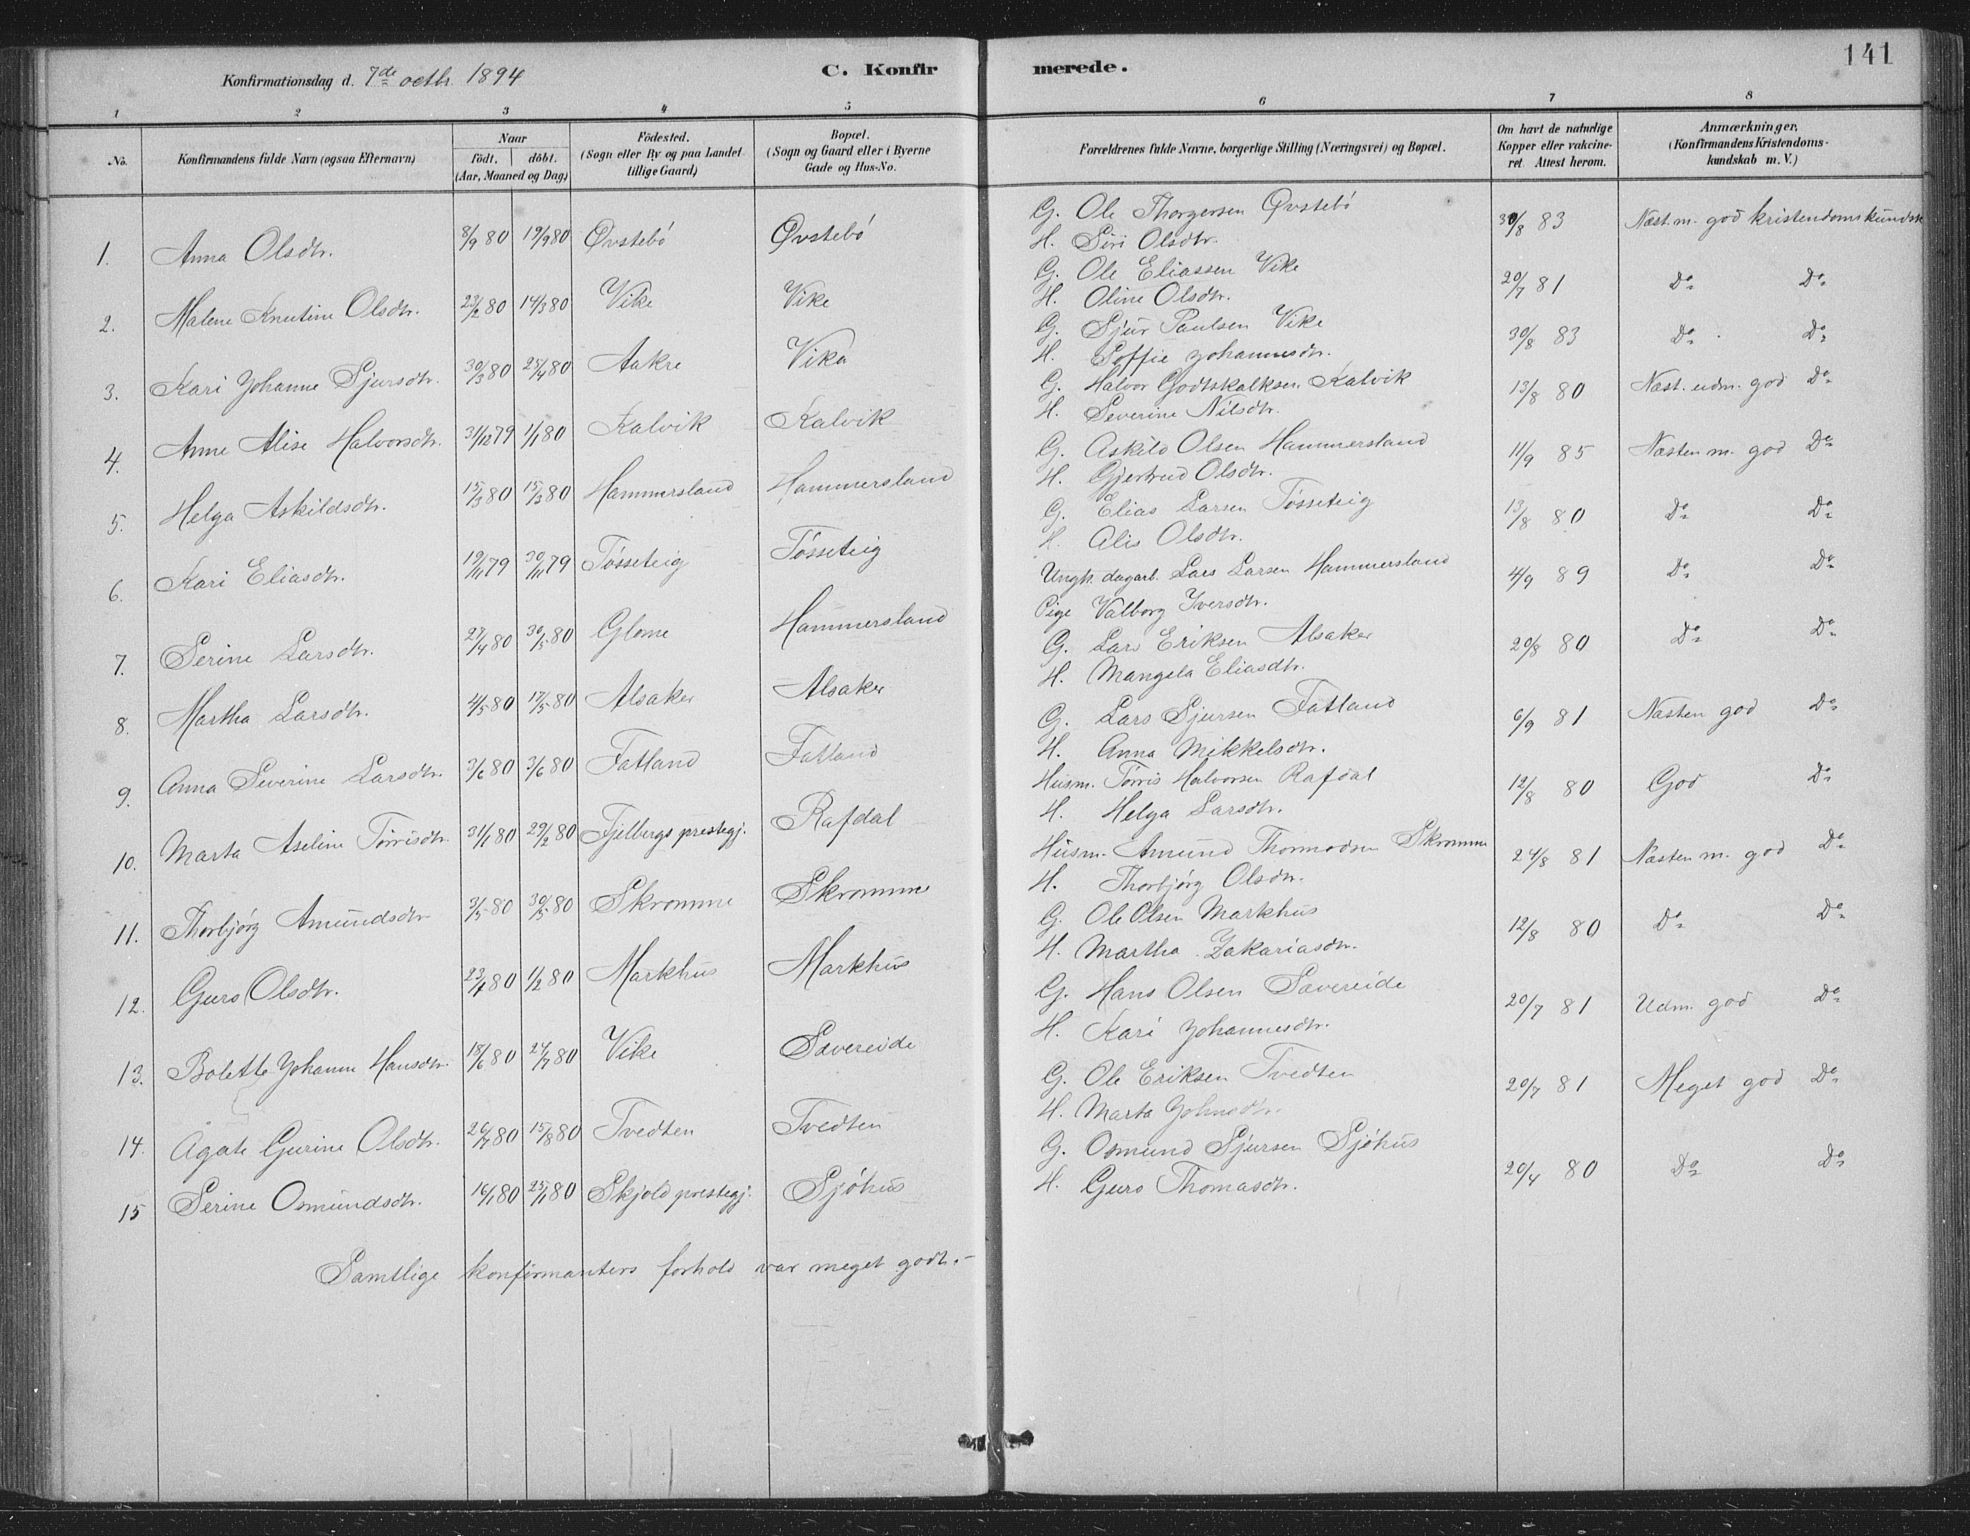 Konfirmationsdag d. 7de octbr. 1894
C. Konfir merede. 141
1 2 3 4 5 6 7 8
No. Konfirmandens fulde Navn (ogsaa Efternavn)
Naar
födt. döbt.
(Aar, Maaned og Dag)
Födested.
(Sogn eller By og paa Landet
tillige Gaard)
Bopæl.
(Sogn og Gaard eller i Byerne
Gade og Hus-No.
Forældrenes fulde Navne, borgerlige Stilling (Næringsvei) og Bopæl.
Om havt de naturlige
Kopper eller vakcine-
ret. Attest herom.
Anmærkninger,
(Konfirmandens Kristendoms-
kundskab m. V.)
1. Anna Olsdtr. 8/9 80 19/9 80 Øvstebó Øvstebó G. Ole Thorgersen Øvstebó 30/8 83 Næst. m. god kristendomskundsk
H. Siri Olsdtr.
2. Malene Knutine Olsdtr. 23/2 80 14/3 80 Vike Vike G. Ole Eliassen Vike 20/7 81 Do Do
H. Oline Olsdtr.
3. Kari Johanne Sjursdtr. 30/3 80 25/4 80 Aakre Vika G. Sjur Paulsen Vike 30/8 83 Do Do
H. Soffie Johannesdtr.
4. Anne Alise Halvorsdtr. 31/12 79 1/1 80 Kalvik Kalvik G. Halvor Godtskalksen Kalvik 13/8 80 Næst. udm. god Do
H. Severine Nilsdtr.
5. Helga Askildsdtr. 15/3 80 15/3 80 Hammersland Hammersland G. Askild Olsen Hammersland 11/9 85 Næsten m. god Do
H. Gjertrud Olsdtr.
6. Kari Eliasdtr. 19/11 79 30/11 79 Tósseteig Tósseteig G. Elias Larsen Tósseteig 13/8 80 Do Do
H. Alis Olsdtr.
7. Serine Larsdtr. 27/4 80 30/5 80 Glome Hammersland Ungk. dagarb. Lars Larsen Hammersland 4/9 89 Do Do
Pige Valborg Iversdtr.
8. Martha Larsdtr. 4/5 80 17/5 80 Alsaker Alsaker G. Lars Eriksen Alsaker 20/8 80 Do Do
H. Mangela Eliasdtr.
9. Anna Severine Larsdtr. 3/6 80 3/6 80 Fatland Fatland G. Lars Sjursen Fatland 6/9 81 Næsten god Do
H. Anna Mikkelsdtr.
10. Marta Aseline Tórrisdtr. 31/1 80 29/2 80 Fjelbergs prestegj. Rafdal Husm. Tórris Halvorsen Rafdal 12/8 80 God Do
H. Helga Larsdtr.
11. Thorbjórg Amundsdtr. 3/5 80 30/5 80 Skromme Skromme Husm. Amund Thormodsen Skromme 24/8 81 Næsten m. god Do
H. Thorbjórg Olsdtr.
12. Guro Olsdtr. 23/1 80 1/2 80 Markhus Markhus G. Ole Olsen Markhus 12/8 80 Do Do
H. Martha Zakariasdtr.
13. Bolette Johanne Hansdtr. 18/6 80 24/7 80 Vike Sævereide G. Hans Olsen Sævereide 20/7 81 Udm. god Do
H. Kari Johannesdtr.
14. Agate Gurine Olsdtr. 26/7 80 15/8 80 Tvedten Tvedten G. Ole Eriksen Tvedten 20/7 81 Meget god Do
H. Marta Johnsdtr.
15 Serine Osmundsdtr. 16/1 80 25/1 80 Skjold prestegj. Sjóhus G. Osmund Sjursen Sjóhus 20/4 80 Do Do
H. Guro Thomasdtr.
Samtlige konfirmanters forhold var meget godt. –